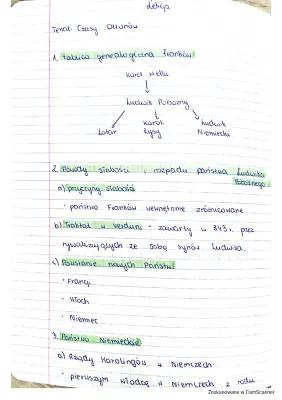 Lekcja
Temat Czasy Ottonów
1. Tablica genealogiczna Franków
Karol Wielki
Ludwik Pobożny
Lotar Karol Łysy Ludwik Niemiecki
2. Powody słabości i rozpadu państwa Ludwika Pobożnego
a) przyczyny słabości
• państwo Franków wewnętrznie zróżnicowane
b) Traktat w Verdun - zawarty w 843 r. przez
rywalizujących ze sobą synów Ludwika.
c) Powstanie nowych Państw:
• Francji
• Włoch
• Niemiec
3. Państwo Niemieckie
a) Rządy Karolingów w Niemczech:
• pierwszym władcą w Niemczech z rodu
Zeskanowane w CamScanner